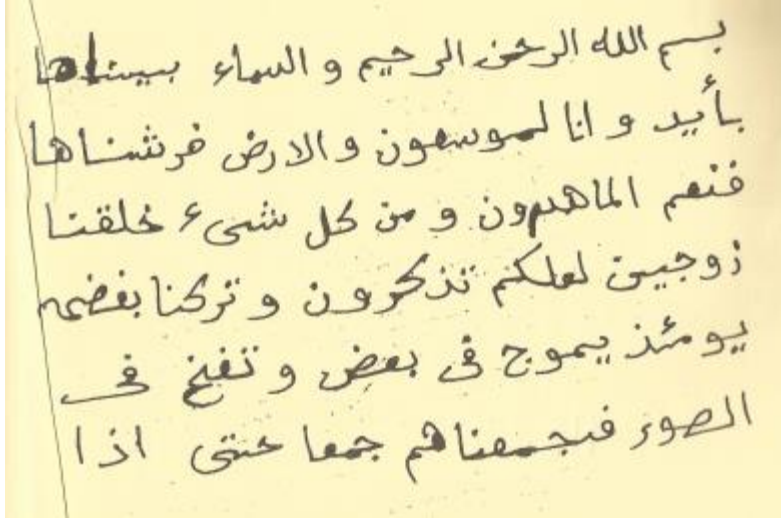 بسم الله الرحمن الرحيم و السماء بنيناها
بأييد و انا لموسعون و الارض فرشناها
فنعم الماهدون و من كل شىء خلقنا
زوجين لعلكم تذكرون و تركنا بعضهم
يومئذ يموج فى بعض و نفخ فى
الصور فجمعناهم جمعا حتى اذا